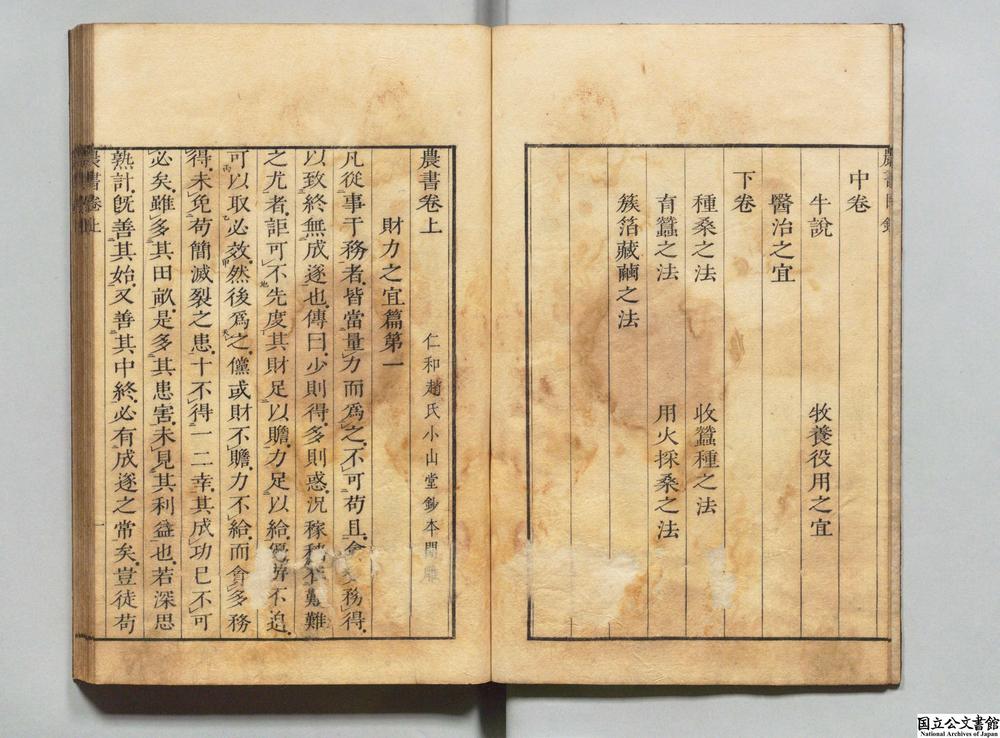 中卷
牛說 牧養役用之宜
醫治之宜
下卷
種桑之法 收蠶種之法
育蠶之法 用火採桑之法
簇箔藏繭之法
農書卷上 仁和趙氏小山堂鈔本開雕
財力之宜篇第一
凡從事于務者皆當量力而爲之不可苟且 務得
以致終無成遂也傳曰少則得多則惑況稼穡 艱難
之尤者詎可不先度其財足以贍力足以給 不迫
可以取必效然後爲之儻或財不贍力不給而 多務
得未免苟簡滅裂之患十不得一二幸其成功已不可
必矣雖多其田畝是多其患害未見其利益也若深思
熟計旣善其始又善其中終必有成遂之常矣豈徒苟
農書卷上
一
国立公文書館
National Archives of Japan